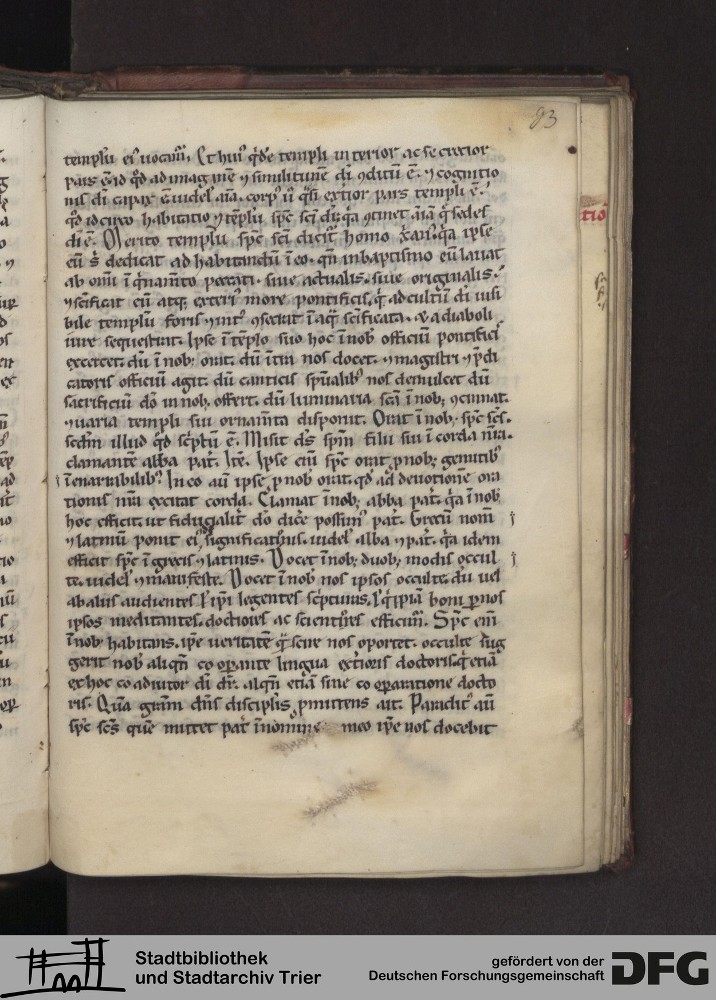 83
templū ei' uocamī. Et hui' q̇dē templi interior ac secretior
pars ē id qd̄ ad imaginē ⁊ similitudinē di ꝯditū ē. ⁊ cognitio
nis di capax ē uidel' aīa. corp' ū q̇si extior pars templi ē.
qd̄ id circo habitatio ⁊ tēplū spc̄ sci dr̄. q̇a ꝯtinet aīā q̇ sedes
di ē. Merito templū spc̄ sci dicit̄ homo xan'. q̇a ipse
eū s' dedicat ad habitandū ī eo. qn̄ in baptismo eū lauat
ab omī īq̇nam̄to peccati. siue actualis. siue originalis.
⁊ scīficat eū atq; exteri' more pontificis. q̇ ad cultū di uisi
bile templū foris ⁊ int' ꝯsecrat ī aq̇ scīficata. ⁊ a diaboli
iure sequestrat. Ipse ī tēplo suo hoc ī nob officiū pontifici'
excercet. dū ī nob; orat. dū īt' nos docet. ⁊ magistri ⁊ p̄di
catoris officiū agit. dū canticis sp̄ualib' nos demulcet dū
sacrificiū dō in nob; offert. dū luminaria scā ī nob; ꝯcinnat.
⁊ uaria templi sui ornam̄ta disponit. Orat ī nob; spc̄ scs̄.
scd̄m illud qd̄ sc̄ptū ē. Misit ds̄ spm̄ filii sui ī corda nr̄a.
clamantē abba pat'. Itē. Ipse eni spc̄ orat ꝓ nob; gemitib'
īenarrabilib'. In eo aū ipse ꝓ nob orat. qd̄ ad deuotionē ora
tionis nr̄a excitat corda. Clamat ī nob; abba pat'. q̇a ī nob;
hoc efficit. ut fiducialit' dō dic̄e possim' pat'. Grecū nom̄
⁊ latinū ponit ei' significatiuū. uidel' abba ⁊ pat'. q̇a idem
efficit spc̄ ī grecis ⁊ latinis. Docet ī nob; duob; modis occul
te. uidel' ⁊ manifeste. Docet ī nob; nos ipsos occulte. dū uel
ab aliis audientes ł ip̄i legentes sc̄pturas.
ipsos meditantes. doctiores ac scientiores efficim̄. Spc̄ eni
ī nob; habitans. ip̄e ueritatē q̄ scire nos oportet. occulte sug
gerit nob' aliqn̄ co oꝑante lingua exterioris doctoris. q̇ etiā
ex hoc co adiutor di dr̄. alqn̄ etiā sine co oꝑatione docto
ris. Quā gram̄ dn̄s disciplis ꝓmittens ait. Paraclit' aū
spc̄ scs̄ quē mittet pat' ī nomine meo ip̄e uos docebit
tiō
Stadtbibliothek
und Stadtarchiv Trier
gefördert von der
Deutschen Forschungsgemeinschaft
DFG